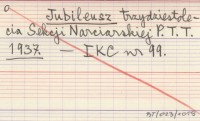 Jubileusz trzydziestole-
cia Sekcji Narciarskiej P.T.T.
1937. — IKC nr 99.